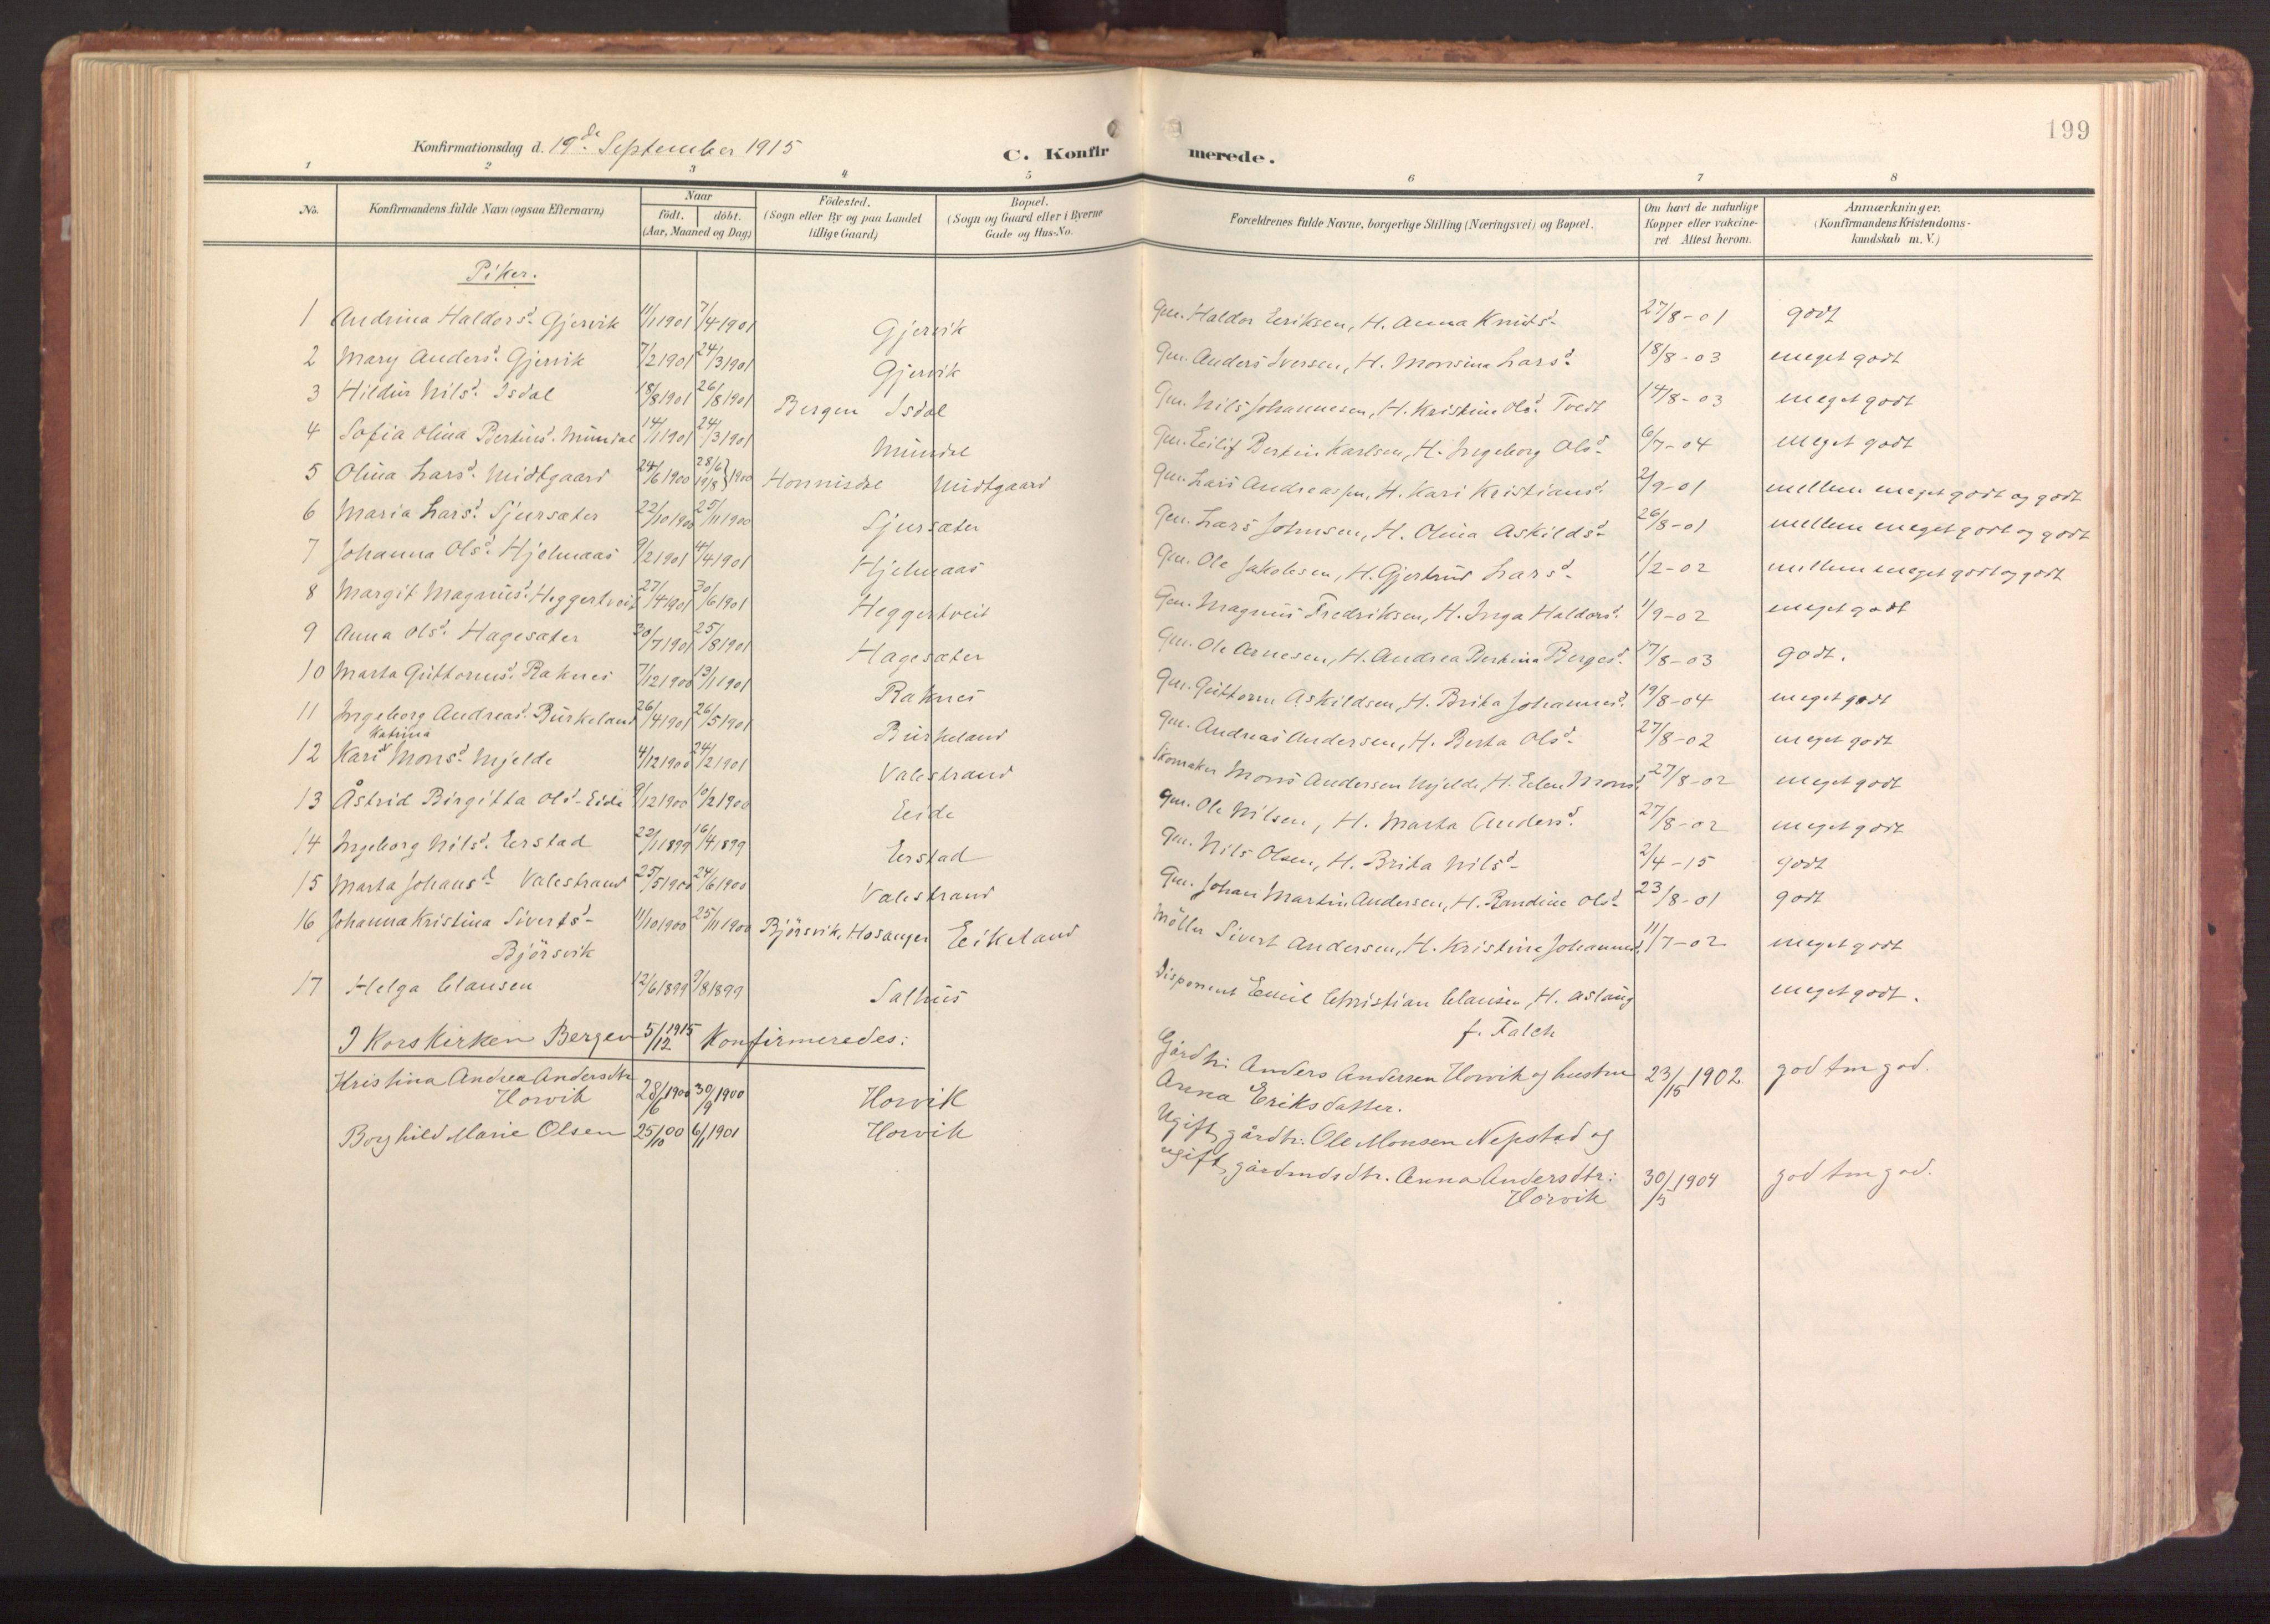 199
Konfirmationsdag d. 19de September 1915
C. Konfirmerede.
1 2 3 4 5 6 7 8
No. Konfirmandens fulde Navn (ogsaa Efternavn) Naar født. døbt. (Aar, Maaned og Dag) Fødested. (Sogn eller By og paa Landet tillige Gaard) Bopæl. (Sogn og Gaard eller i Byerne Gade og Hus-No. Forældrenes fulde Navne, borgerlige Stilling (Næringsvei) og Bopæl. Om havt de naturlige Kopper eller vakcineret Attest herom. Anmærkninger. (Konfirmandens Kristendomskundskab m. V.)
Piker.
1 Andrina Haldorsd. Gjervik 11/1 1901 7/4 1901 Gjervik Gm. Haldor Eeriksen, H. Anna Knutsd. 27/8-01 godt
2 Mary Andersd. Gjervik 7/2 1901 24/3 1901 Gjervik Gm. Anders Iversen, H. Monsina Larsd. 18/8-03 meget godt
3 Hildur Nilsd. Isdal 18/8 1901 26/8 1901 Bergen Isdal Gm. Nils Johannesen, H. Kristine Olsd. Tvedt 14/8-03 meget godt
4 Sofia Olina Bertinsd. Mundal 14/1 1901 24/3 1901 Mundal Gm. Eilif Bertin Karlsen, H. Ingeborg Olsd. 6/7-04 meget godt
5 Olina Larsd. Midtgaard 24/6 1900 28/6 19/8 } 1900 Honnisdal Midtgaard Gm. Lars Andreassen, H. Kari Kristiansd. 2/9-01 mellem meget godt og godt
6 Maria Larsd. Sjursæter 22/10 1900 25/11 1900 Sjursæter Gm. Lars Johnsen, H. Olina Askildsd. 26/8-01 mellem meget godt og godt
7 Johanna Olsd. Hjelmaas 9/2 1901 4/4 1901 Hjelmaas Gm. Ole Jakobsen, H. Gjertrud Larsd. 1/2-02 mellem meget godt og godt
8 Margit Magnusd. Heggertveit 27/4 1901 30/6 1901 Heggertveit Gm. Magnus Fredriksen, H. Inga Haldorsd. 1/9-02 meget godt
9 Anna Olsd. Hagesæter 30/7 1901 25/8 1901 Hagesæter Gm. Ole Arnesen, H. Andrea Bertina Bergesd. 17/8-03 godt.
10 Marta Guttormsd. Raknes 7/12 1900 13/1 1901 Raknes Gm. Guttorm Askildsen, H. Brita Johannesd. 19/8-04 meget godt
11 Ingeborg Andreasd. Burkeland 26/4 1901 26/5 1901 Burkeland Gm. Andreas Andersen, H. Berta Olsd. 27/8-02 meget godt
Katrina
12 Kari Monsd. Mjelde 4/12 1900 24/2 1901 Valestrand Skomaker Mons Andersen Mjelde, H. Elen Monsd. 27/8-02 meget godt
13 Åstrid Birgitta Olsd. Eide 9/12 1900 10/2 1900 Eide Gm. Ole Nilsen, H. Marta Andersd. 27/8-02 meget godt
14 Ingeborg Nilsd. Eerstad 22/1 1899 16/4 1899 Eerstad Gm. Nils Olsen, H. Brita Nilsd. 2/4-15 godt
15 Marta Johansd. Valestrand 25/5 1900 24/6 1900 Valestrand Gm. Johan Martin Andersen, H. Randine Olsd. 23/8-01 godt
16 Johanna Kristina Sivertsd. Bjørsvik 11/10 1900 25/11 1900 Bjørsvik, Hosanger Eikeland Møller Sivert Andersen, H. Kristine Johannesd. 11/7-02 meget godt
17 Helga Clausen 12/6 1899 9/8 1899 Salhus Disponent Emil Christian Clausen, H. Aslaug f. Falch meget godt.
I Korskirken Bergen 5/12 1915 Konfirmeredes:
Kristina Andrea Andersdtr Horvik 28/6 1900 30/9 1900 Horvik Gårdbr. Anders Andersen Horvik og hustru Anna Eriksdatter. 23/15 1902. god tm god.
Borghild Marie Olsen 25/10 00 6/1 1901 Horvik Ugift gårdbr. Ole Monsen Nepstad og ugift gårdmdsdtr. Anna Andersdtr: Horvik 30/5 1904 god tm god.